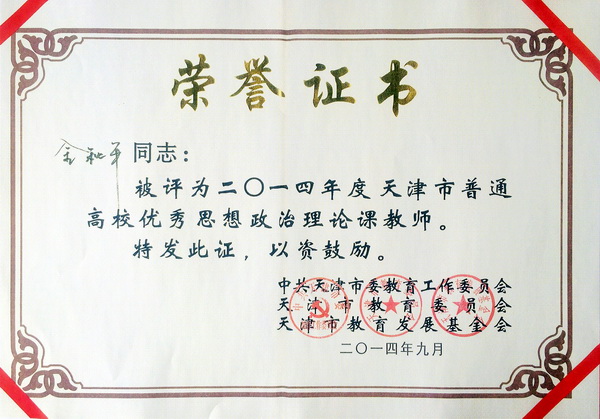 荣誉证书
金秋平 同志：
被评为二〇一四年度天津市普通
高校优秀思想政治理论课教师。
特发此证，以资鼓励。
中共天津市委教育工作委员会
天津市教育委员会
天津市教育发展基金会
二〇一四年九月